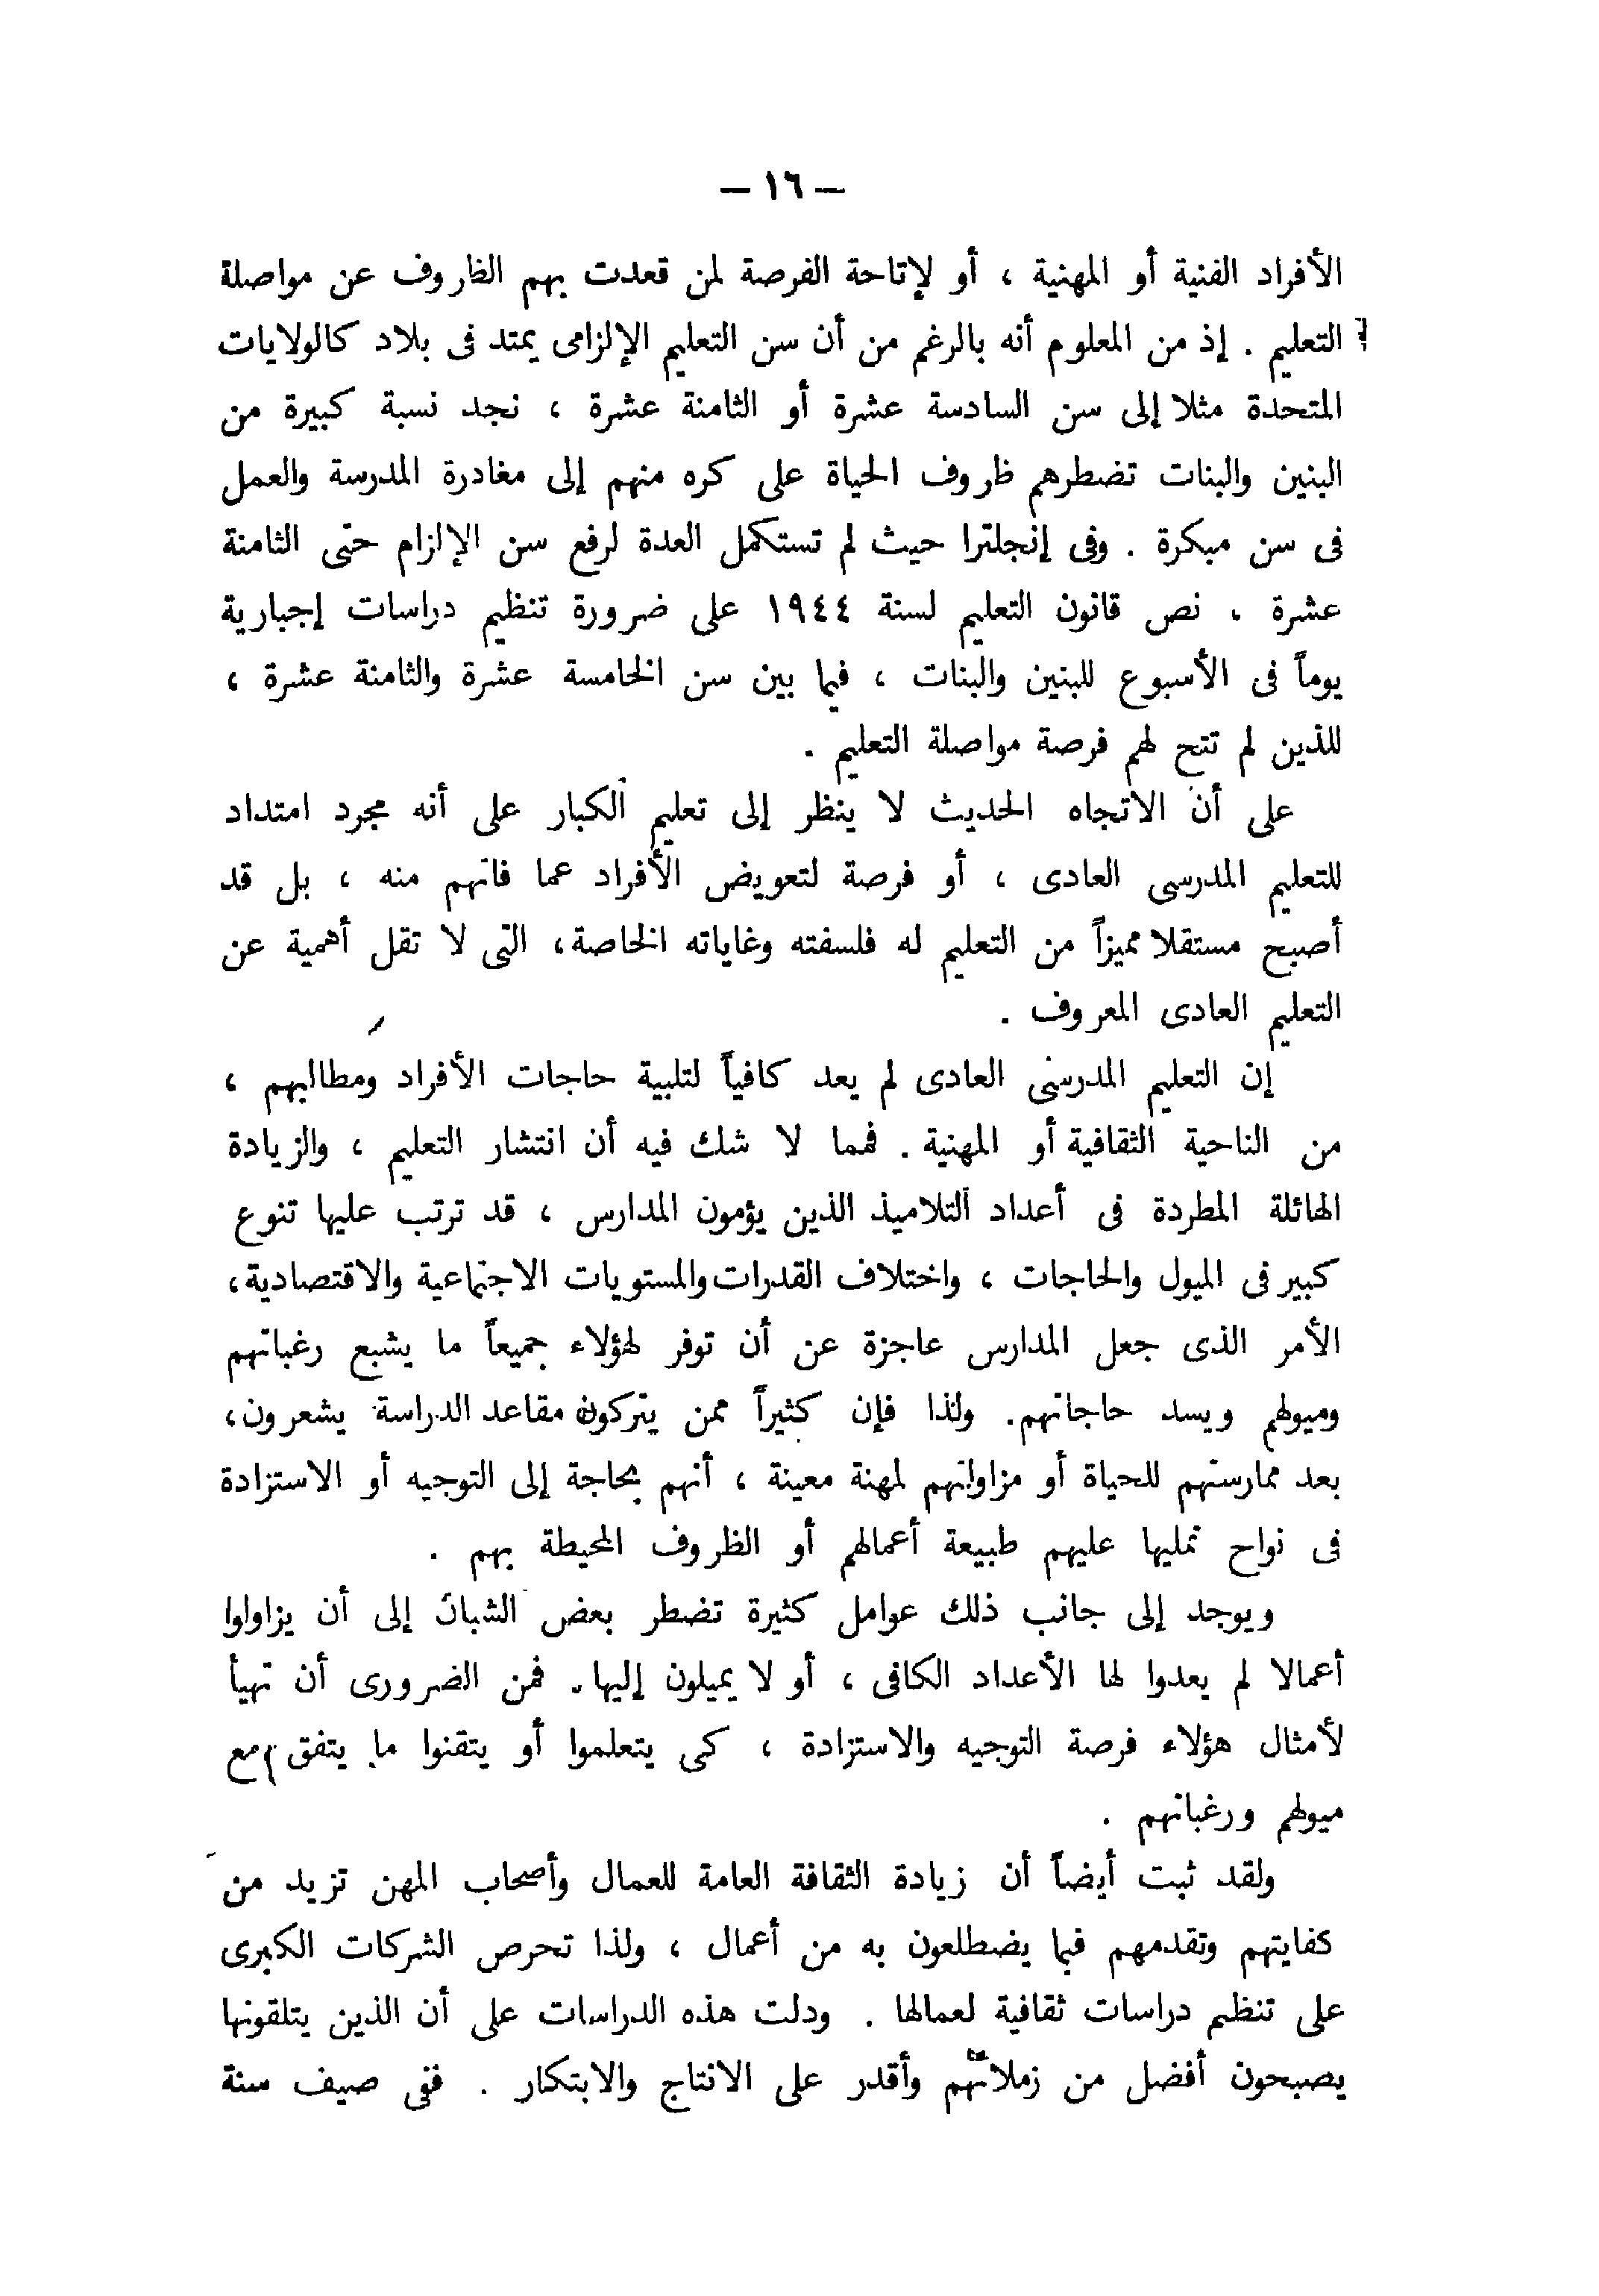 — ١٦ —
الأفراد الفنية أو المهنية ، أو لإتاحة الفرصة لمن قعدت بهم الظروف عن مواصلة
التعليم . إذ من المعلوم أنه بالرغم من أن سن التعليم الإلزامى يمتد فى بلاد كالولايات
المتحدة مثلا إلى سن السادسة عشرة أو الثامنة عشرة ، نجد نسبة كبيرة من
البنين والبنات تضطرهم ظروف الحياة على كره منهم إلى مغادرة المدرسة والعمل
فى سن مبكرة . وفى إنجلترا حيث لم تستكمل العدة لرفع سن الإلزام حتى الثامنة
عشرة ، نص قانون التعليم لسنة ١٩٤٤ على ضرورة تنظيم دراسات إجبارية
يوماً فى الأسبوع للبنين والبنات ، فيما بين سن الخامسة عشرة والثامنة عشرة ،
للذين لم تتح لهم فرصة مواصلة التعليم .
على أن الاتجاه الحديث لا ينظر إلى تعليم الكبار على أنه مجرد امتداد
للتعليم المدرسى العادى ، أو فرصة لتعويض الأفراد عما فاتهم منه ، بل قد
أصبح مستقلا مميزاً من التعليم له فلسفته وغاياته الخاصة ، التى لا تقل أهمية عن
التعليم العادى المعروف .
إن التعليم المدرسى العادى لم يعد كافياً لتلبية حاجات الأفراد ومطالبهم ،
من الناحية الثقافية أو المهنية . فمما لا شك فيه أن انتشار التعليم ، والزيادة
الهائلة المطردة فى أعداد التلاميذ الذين يؤمون المدارس ، قد ترتب عليها تنوع
كبير فى الميول والحاجات ، واختلاف القدرات والمستويات الاجتماعية والاقتصادية ،
الأمر الذى جعل المدارس عاجزة عن أن توفر لهؤلاء جميعاً ما يشبع رغباتهم
وميولهم ويسد حاجاتهم . ولذا فإن كثيراً ممن يتركون مقاعد الدراسة يشعرون ،
بعد ممارستهم للحياة أو مزاولتهم لمهنة معينة ، أنهم بحاجة إلى التوجيه أو الاستزادة
فى نواح تمليها عليهم طبيعة أعمالهم أو الظروف المحيطة بهم .
ويوجد إلى جانب ذلك عوامل كثيرة تضطر بعض الشبان إلى أن يزاولوا
أعمالا لم يعدوا لها الأعداد الكافى ، أو لا يميلون إليها . فمن الضرورى أن تهيأ
لأمثال هؤلاء فرصة التوجيه والاستزادة ، كى يتعلموا أو يتقنوا ما يتفق مع
ميولهم ورغباتهم .
ولقد ثبت أيضاً أن زيادة الثقافة العامة للعمال وأصحاب المهن تزيد من
كفايتهم وتقدمهم فيما يضطلعون به من أعمال ، ولذا تحرص الشركات الكبرى
على تنظيم دراسات ثقافية لعمالها . ودلت هذه الدراسات على أن الذين يتلقونها
يصبحون أفضل من زملائهم وأقدر على الانتاج والابتكار . ففى صيف سنة